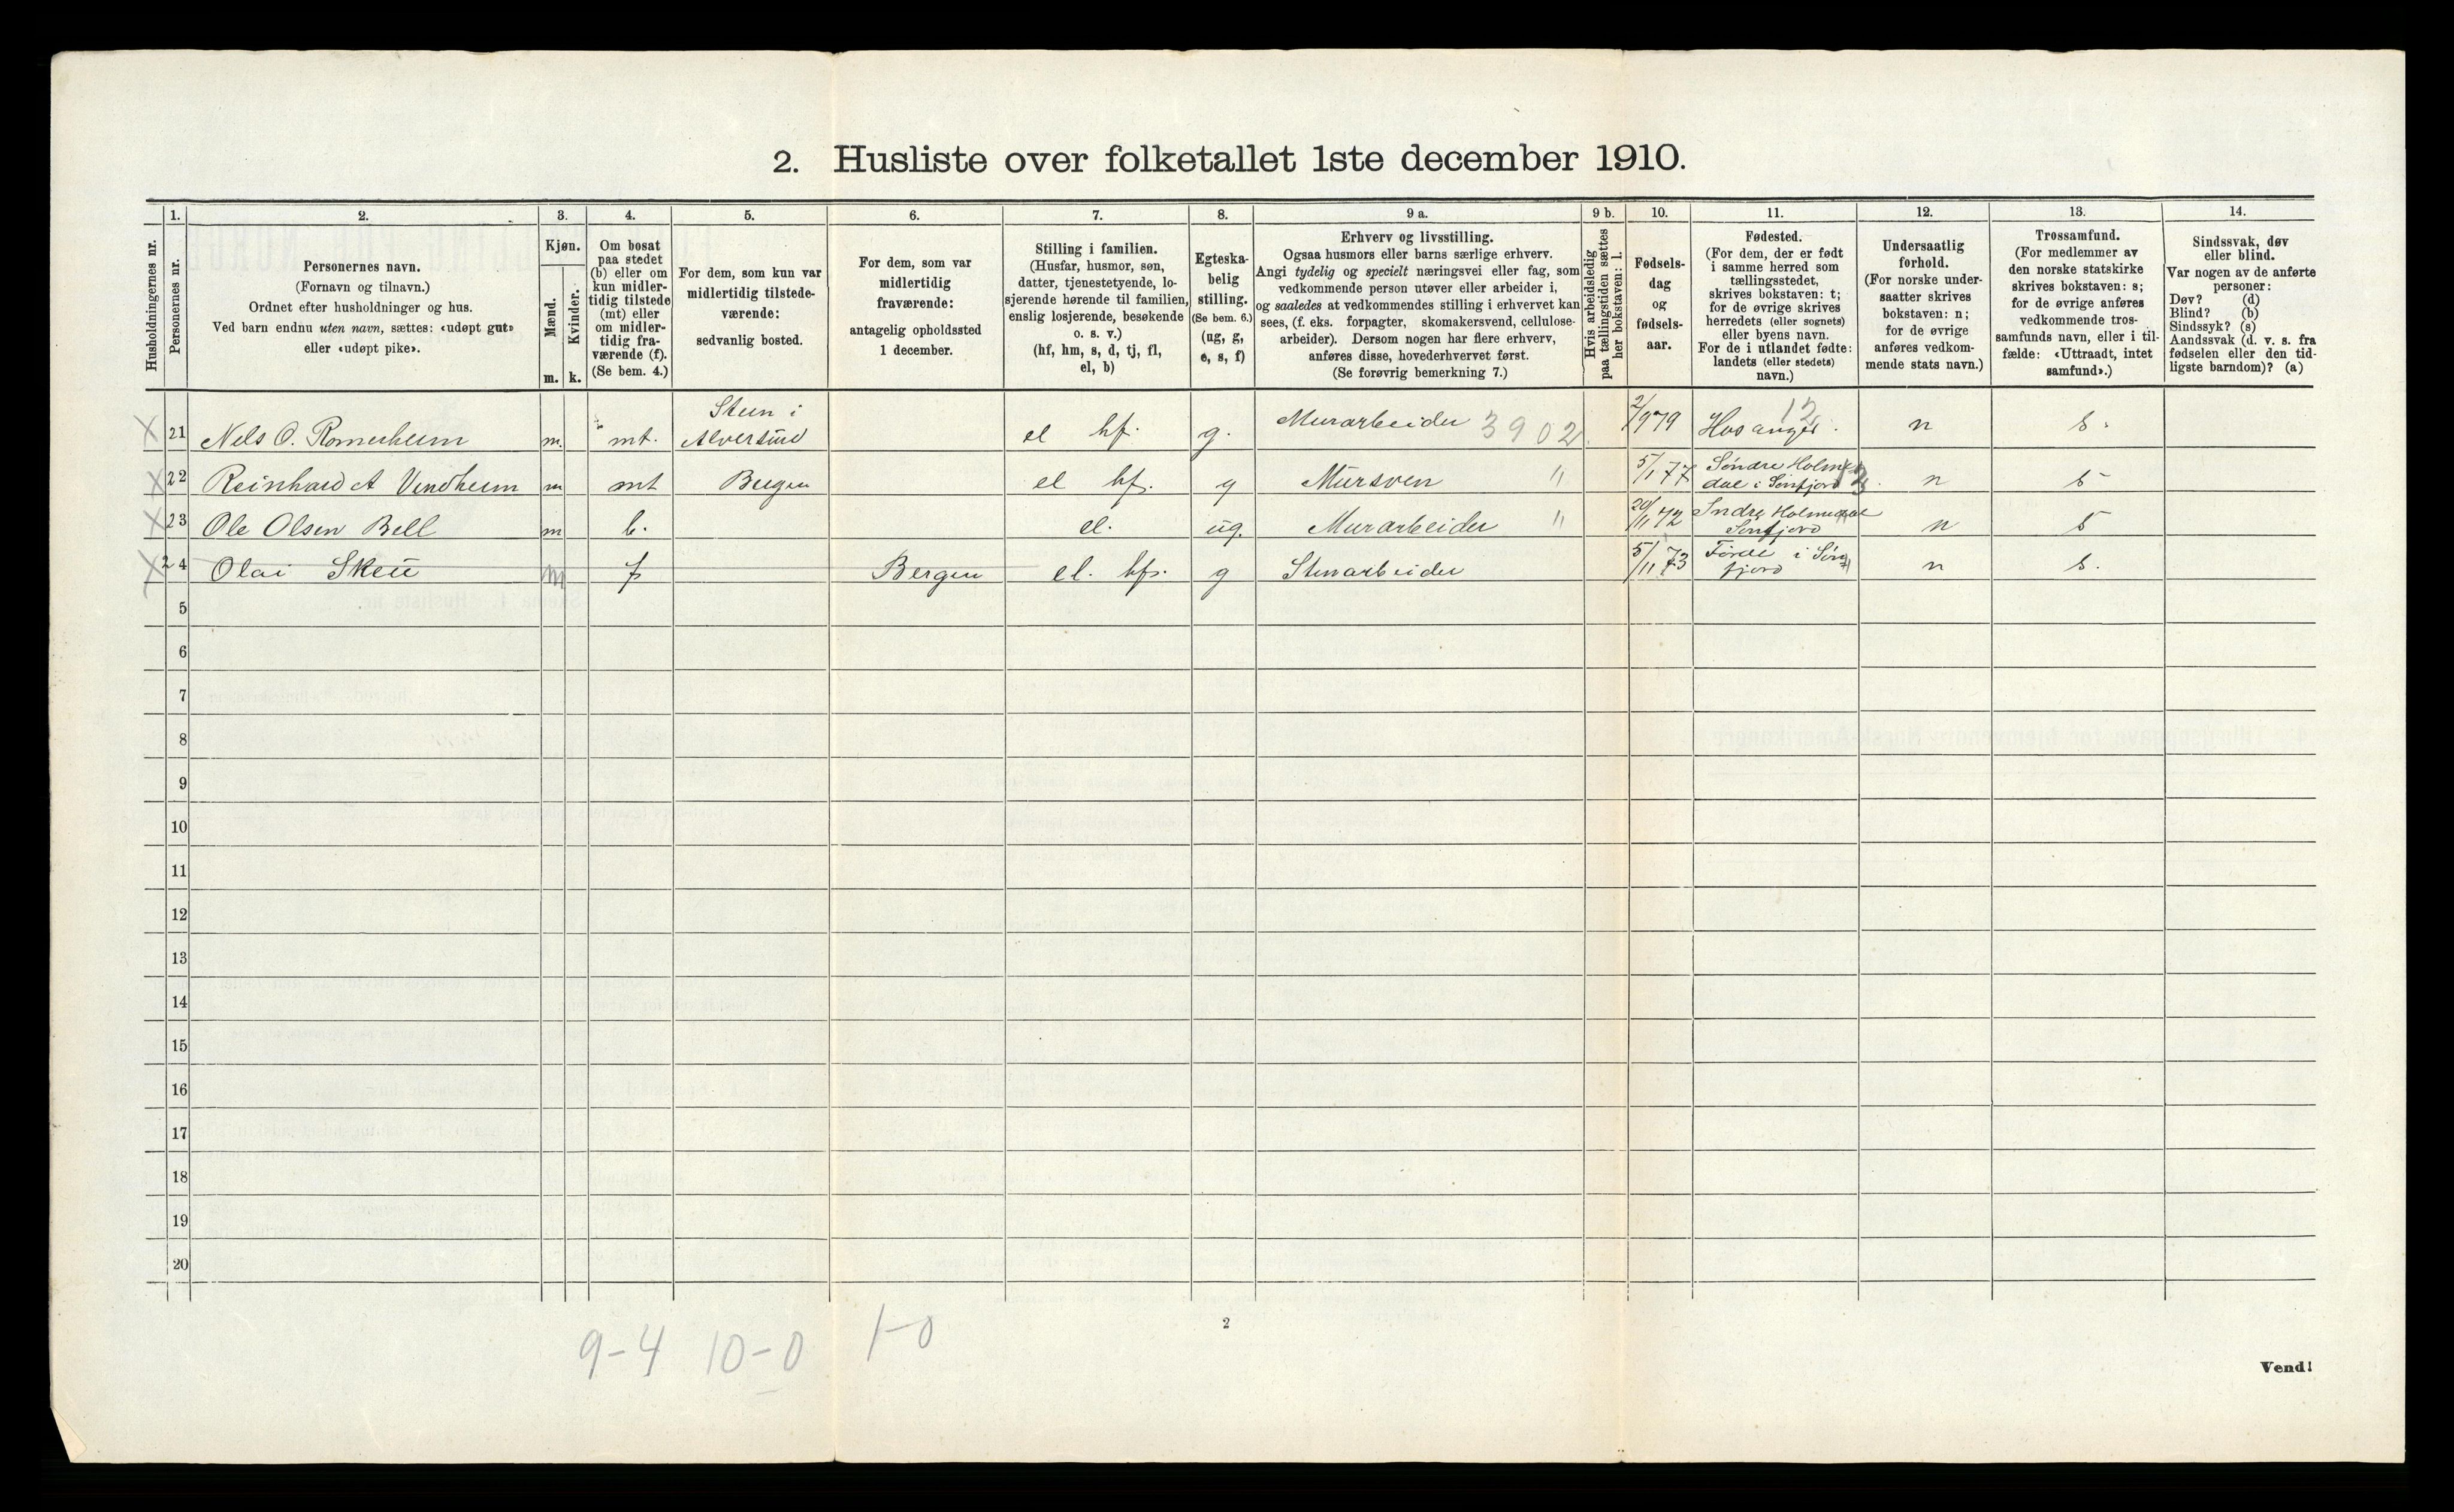 2. Husliste over folketallet 1ste december 1910.
Husholdningernes nr.
1.
Personernes nr.
2.
Personernes navn.
(Fornavn og tilnavn.)
Ordnet efter husholdninger og hus.
Ved barn endnu uten navn, sættes: «udøpt gut»
eller «udøpt pike».
3.
Kjøn.
Mænd.
Kvinder.
m. k.
4.
Om bosat
paa stedet
(b) eller om
kun midler-
tidig tilstede
(mt) eller
om midler-
tidig fra-
værende (f).
(Se bem. 4.)
5.
For dem, som kun var
midlertidig tilstede-
værende:
sedvanlig bosted.
6.
For dem, som var
midlertidig
fraværende:
antagelig opholdssted
1 december.
7.
Stilling i familien.
(Husfar, husmor, søn,
datter, tjenestetyende, lo-
sjerende hørende til familien,
enslig losjerende, besøkende
o. s. v.)
(hf, hm, s, d, tj, fl,
el, b)
8.
Egteska-
belig
stilling.
(Se bem. 6.)
(ug, g,
e, s, f)
9 a.
Erhverv og livsstilling.
Ogsaa husmors eller barns særlige erhverv.
Angi tydelig og specielt næringsvei eller fag, som
vedkommende person utøver eller arbeider i,
og saaledes at vedkommendes stilling i erhvervet kan
sees, (f. eks. forpagter, skomakersvend, cellulose-
arbeider). Dersom nogen har flere erhverv,
anføres disse, hovederhvervet først.
(Se forøvrig bemerkning 7.)
9 b.
Hvis arbeidsledig
paa tællingstiden sættes
her bokstaven: l.
10.
Fødsels-
dag
og
fødsels-
aar.
11.
Fødested.
(For dem, der er født
i samme herred som
tællingsstedet,
skrives bokstaven: t;
for de øvrige skrives
herredets (eller sognets)
eller byens navn.
For de i utlandet fødte:
landets (eller stedets)
navn.)
12.
Undersaatlig
forhold.
(For norske under-
saatter skrives
bokstaven: n;
for de øvrige
anføres vedkom-
mende stats navn.)
13.
Trossamfund.
(For medlemmer av
den norske statskirke
skrives bokstaven: s;
for de øvrige anføres
vedkommende tros-
samfunds navn, eller i til-
fælde: «Uttraadt, intet
samfund».)
14.
Sindssvak, døv
eller blind.
Var nogen av de anførte
personer:
Døv? (d)
Blind? (b)
Sindssyk? (s)
Aandssvak (d. v. s. fra
fødselen eller den tid-
ligste barndom)? (a)
X 21 Nels O. Romerheim m. mt. Steen i Alversund el hf. g. Murarbeider 3902 2/9 79 Hosanger. 12 n s.
X 22 Reinhard A Vendheim m mt Bergen el hf. g Mursven " 5/1 77 Søndre Holme dal i Sønfjord n s
X 23 Ole Olsen Bell m b. el. ug. Murarbeider " 20/11 72 Indre Holmedal Sønfjord n s
X 24 Olai Skeie m f Bergen el. hf. g Stenarbeider 5/11 73 Førde i Søn fjord n s.
5
6
7
8
9
10
11
12
13
14
15
16
17
18
19
20
9-4 10-0 1-0
2
Vend!